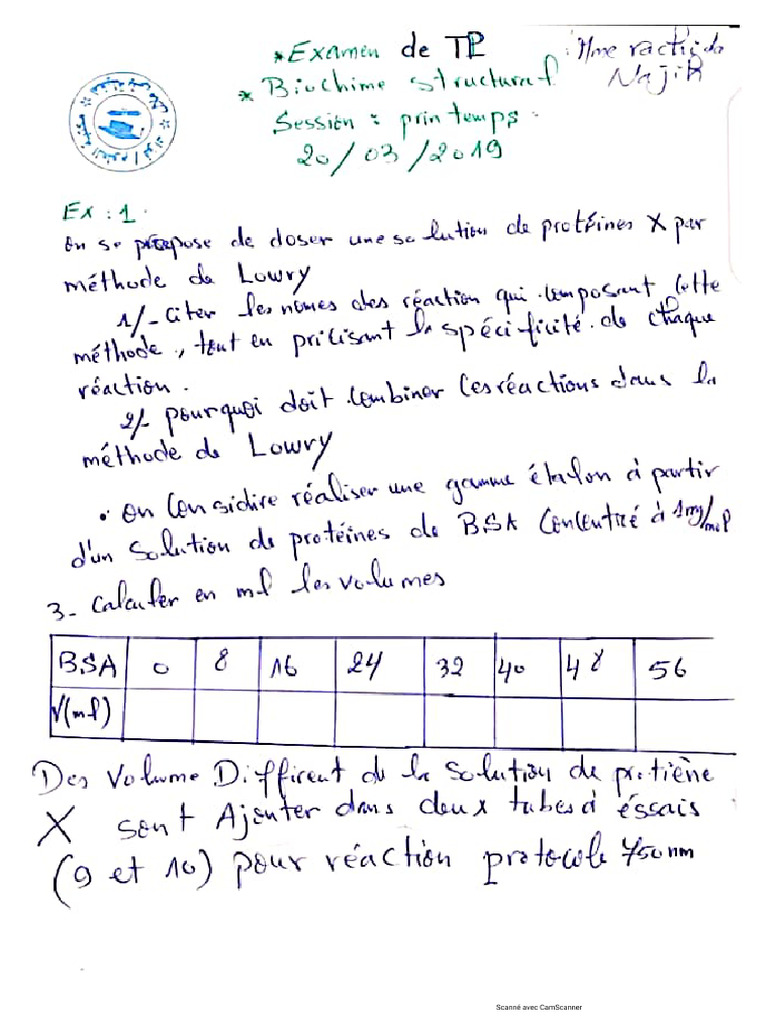 *Examen de TP : Mme rachida
* Biochime structural Najih
Session : printemps.
20/03/2019
Ex : 1.
on se propose de doser une solution de protéines X par
méthode de Lowry
1/- citer les nomes des réaction qui composant cette
méthode, tout en précisant la spécificité de chaque
réaction.
2/- pourquoi doit combiner ces réactions dans la
méthode de Lowry
• on considire réaliser une gamme étalon à partir
d'un solution de protéines de BSA concentré à 1mg/ml
3- calculer en ml les volumes
BSA 0 8 16 24 32 40 48 56
V(ml)
Des volume Différent de la solution de protiène
X sont Ajouter dans deux tubes à éssais
(9 et 10) pour réaction protocole 750nm
Scanné avec CamScanner